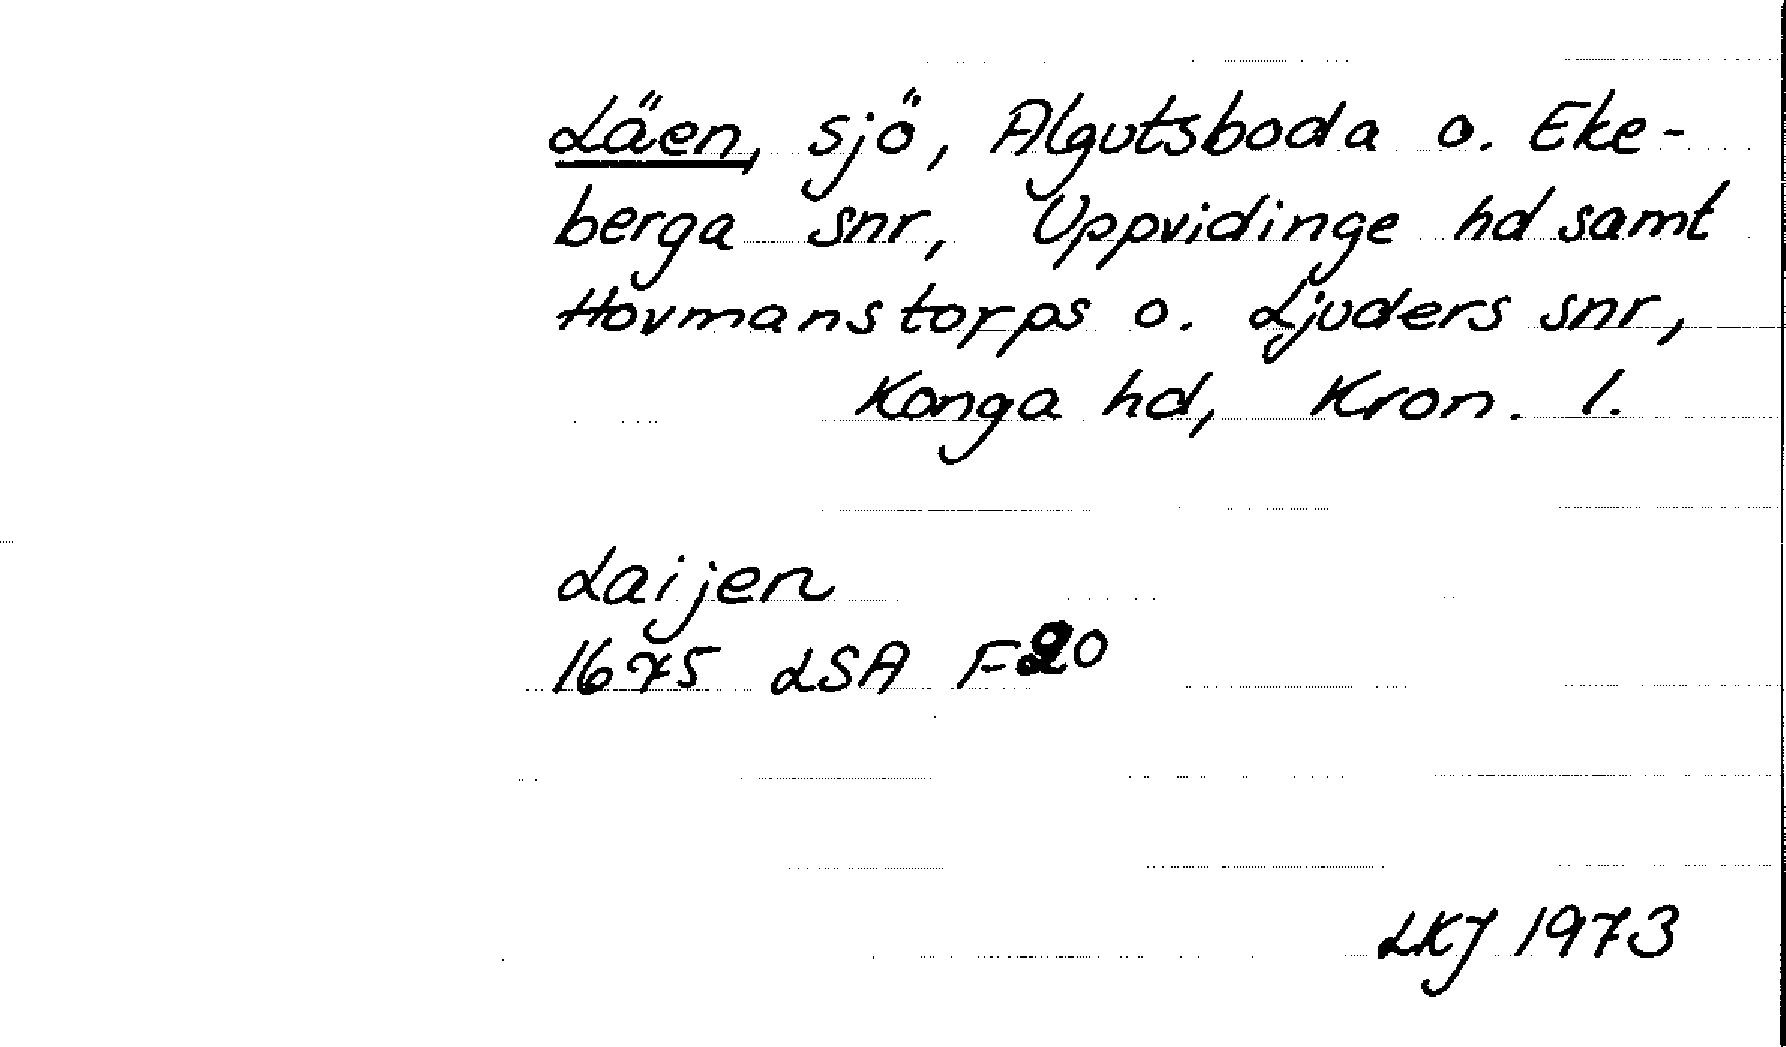 Läen, sjö, Algutsboda o. Eke-
berga snr, Uppvidinge hd samt
Hovmanstorps o. Ljuders snr,
Konga hd, Kron. l.
Laijen
1675 LSA F20
LKJ 1973